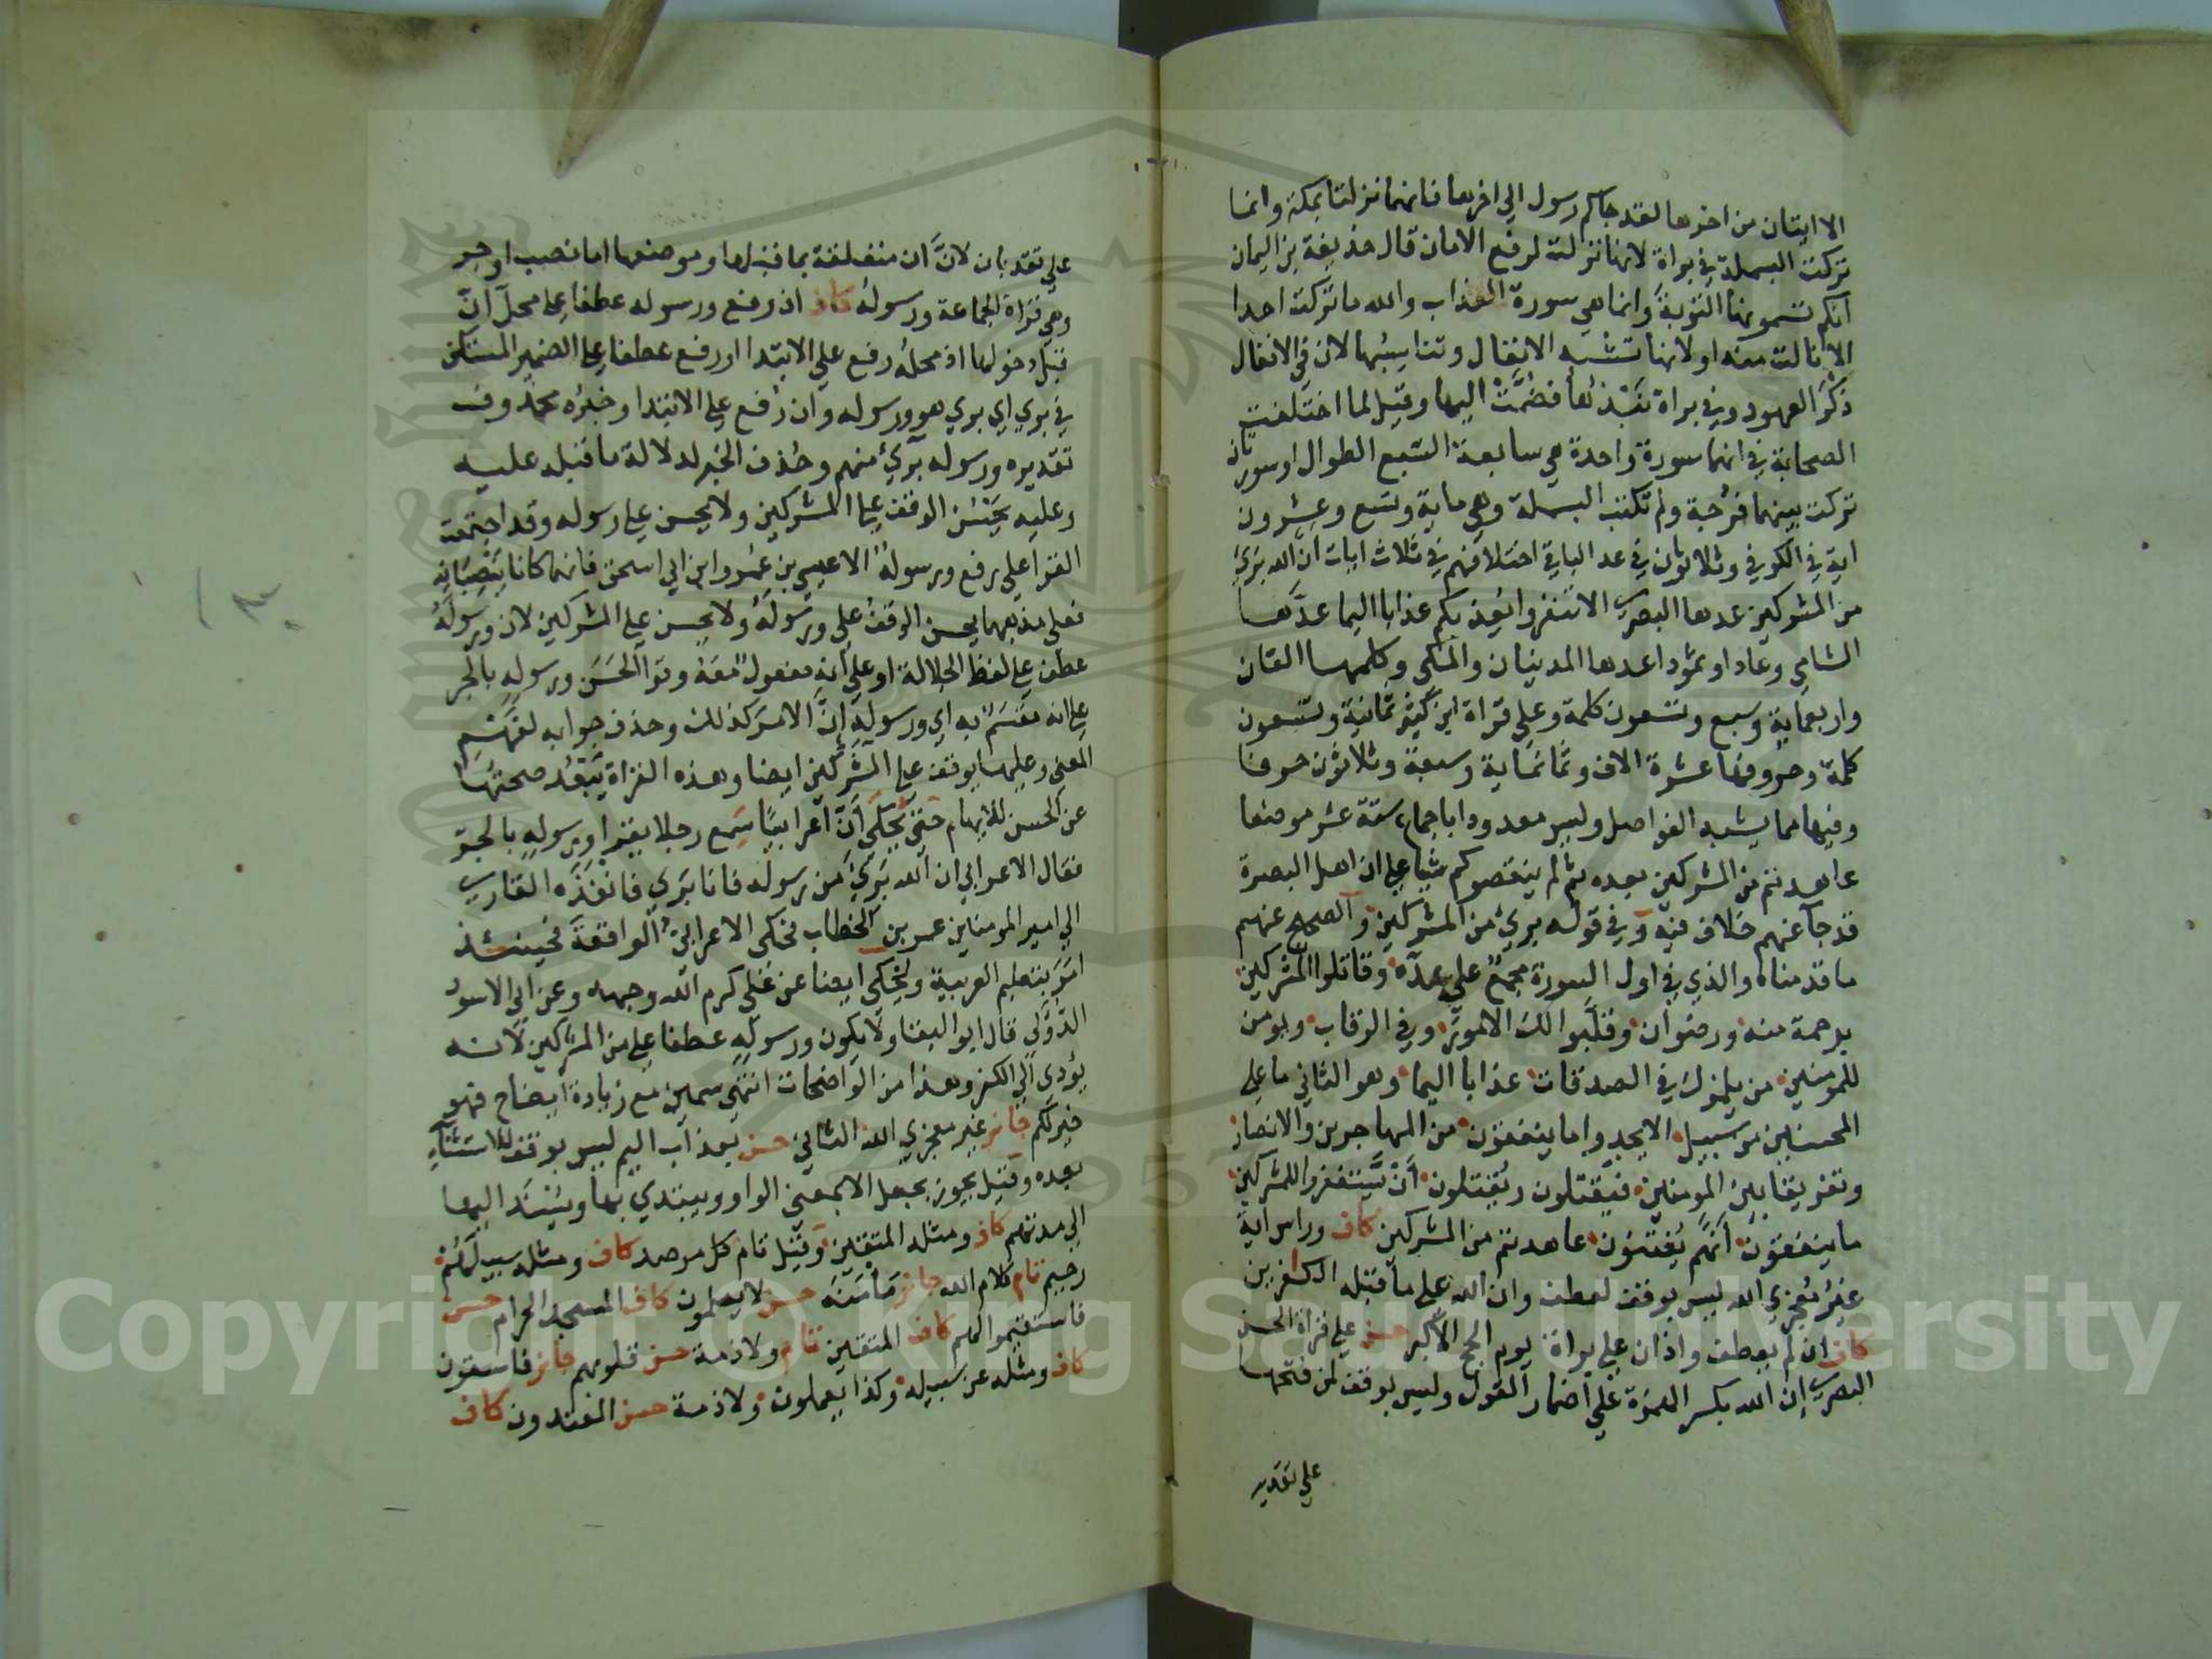 الا ايتان من اخرها لقد جاكم رسول الي اخرها فانهما نزلتا بمكة وانما
تركت البسملة في براة لانها نزلت لرفع الامان قال حذيفة بن اليمان
انكم تسمونها التوبة وانما هي سورة العذاب والله ما تركت احدا
الا نالت منه او لانها تشبه الانفال وتناسبها لان في الانفال
ذكر العهود وفي براة نبذها فضمت اليها وقيل لما اختلفت
الصحابة في انهما سورة واحدة هي سابعة السبع الطوال او سورتان
تركت بينهما فرجة ولم تكتب البسملة وهي ماية وتسع وعشرون
اية في الكوفي وثلاثون في عد الباقي اختلافهم في ثلاث ايات ان الله بري
من المشركين عدها البصري الا تنفروا يعذبكم عذابا اليما عدها
الشامي وعاد وثمود اعدها المدنيان والمكي وكلمها الفان
واربعماية وسبع وتسعون كلمة وعلي قراة ابن كثير ثمانية وتسعون
كلمة وحروفها عشرة الاف وثمانماية وسبعة وثلاثون حرفا
وفيها مما يشبه الفواصل وليس معدودا باجماع ستة عشر موضعا
عاهدتم من المشركين بعده ثم لم ينقصوكم شيا علي ان اهل البصرة
قد جا عنهم خلاف فيه وفي قوله بري من المشركين والصحيح عنهم
ما قدمناه والذي في اول السورة مجمع علي عده وقاتلوا المشركين
برحمة منه ورضوان وقلبوا لك الامور وفي الرقاب ويومن
للمومنين من يلمزك في الصدقات عذابا اليما وهو الثاني ما علي
المحسنين من سبيل الا يجدوا ما ينفقون من المهاجرين والانصار
وتفريقا بين المومنين فيقتلون ويقتلون ان يستغفروا للمشركين
ما ينفقون انهم يفتنون عاهدتم من المشركين كاف وراس اية
غير معجزي الله ليس بوقف لعطف وان الله علي ما قبله الكافرين
كاف ان لم يعطف واذان علي براة يوم الحج الاكبر حسن علي قراة الحسن
البصري ان الله بكسر الهمزة علي اضمار القول وليس بوقف لمن فتحها
علي تقدير
علي تقدير بان لان ان متعلقة بما قبلها وموضعها اما نصب او جر
وهي قراة الجماعة ورسوله كاف ان رفع ورسوله عطفا علي محل ان
قبل دخولها اذ محله رفع علي الابتدا او رفع عطفا علي الضمير المستكن
في بري اي بري هو ورسوله وان رفع علي الابتدا وخبره محذوف
تقديره ورسوله بري منهم وحذف الخبر لدلالة ما قبله عليه
وعليه يحسن الوقف علي المشركين ولا يحسن علي رسوله وقد اجتمعت
القرا علي رفع ورسوله الا عيسي بن عمر وابن ابي اسحق فانهما كانا ينصبانه
فعلي مذهبهما يحسن الوقف علي ورسوله ولا يحسن علي المشركين لان ورسوله
عطف علي لفظ الجلالة او علي انه مفعول معه وقرا الحسن ورسوله بالجر
علي انه مقسم به اي ورسوله ان الامر كذلك وحذف جوابه لفهم
المعني وعليهما يوقف علي المشركين ايضا وهذه القراة يبعد صحتها
عن الحسن للابهام حتي يحكي ان اعرابيا سمع رجلا يقرا ورسوله بالجر
فقال الاعرابي ان الله بري من رسوله فانا بري فانفذه القاري
الي امير المومنين عمر بن الخطاب فحكي الاعرابي الواقعة فحينئذ
امر بتعليم العربية ويحكي ايضا عن علي كرم الله وجهه وعن ابي الاسود
الدولي قال ابو البقا ولا يكون ورسوله عطفا علي من المشركين لانه
يودي الي الكفر وهذا من الواضحات انتهي سمين مع زيادة ايضاح فهو
خير لكم جائز غير معجزي الله الثاني حسن بعذاب اليم ليس بوقف للاستثناء
بعده وقيل يجوز بجعل الا بمعني الواو ويبتدي بها ويسند اليها
الي مدتهم كاف ومثله المتقين وقيل تام كل مرصد كاف ومثله سبيلهم
رحيم تام كلام الله جائز مامنه حسن لا يعلمون كاف المسجد الحرام حسن
فاستقيموا لهم كاف المتقين تام ولا ذمة حسن قلوبهم جائز فاسقون
كاف ومثله عن سبيله وكذا يعملون ولا ذمة حسن المعتدون كاف
Copyright © King Saud University
1957